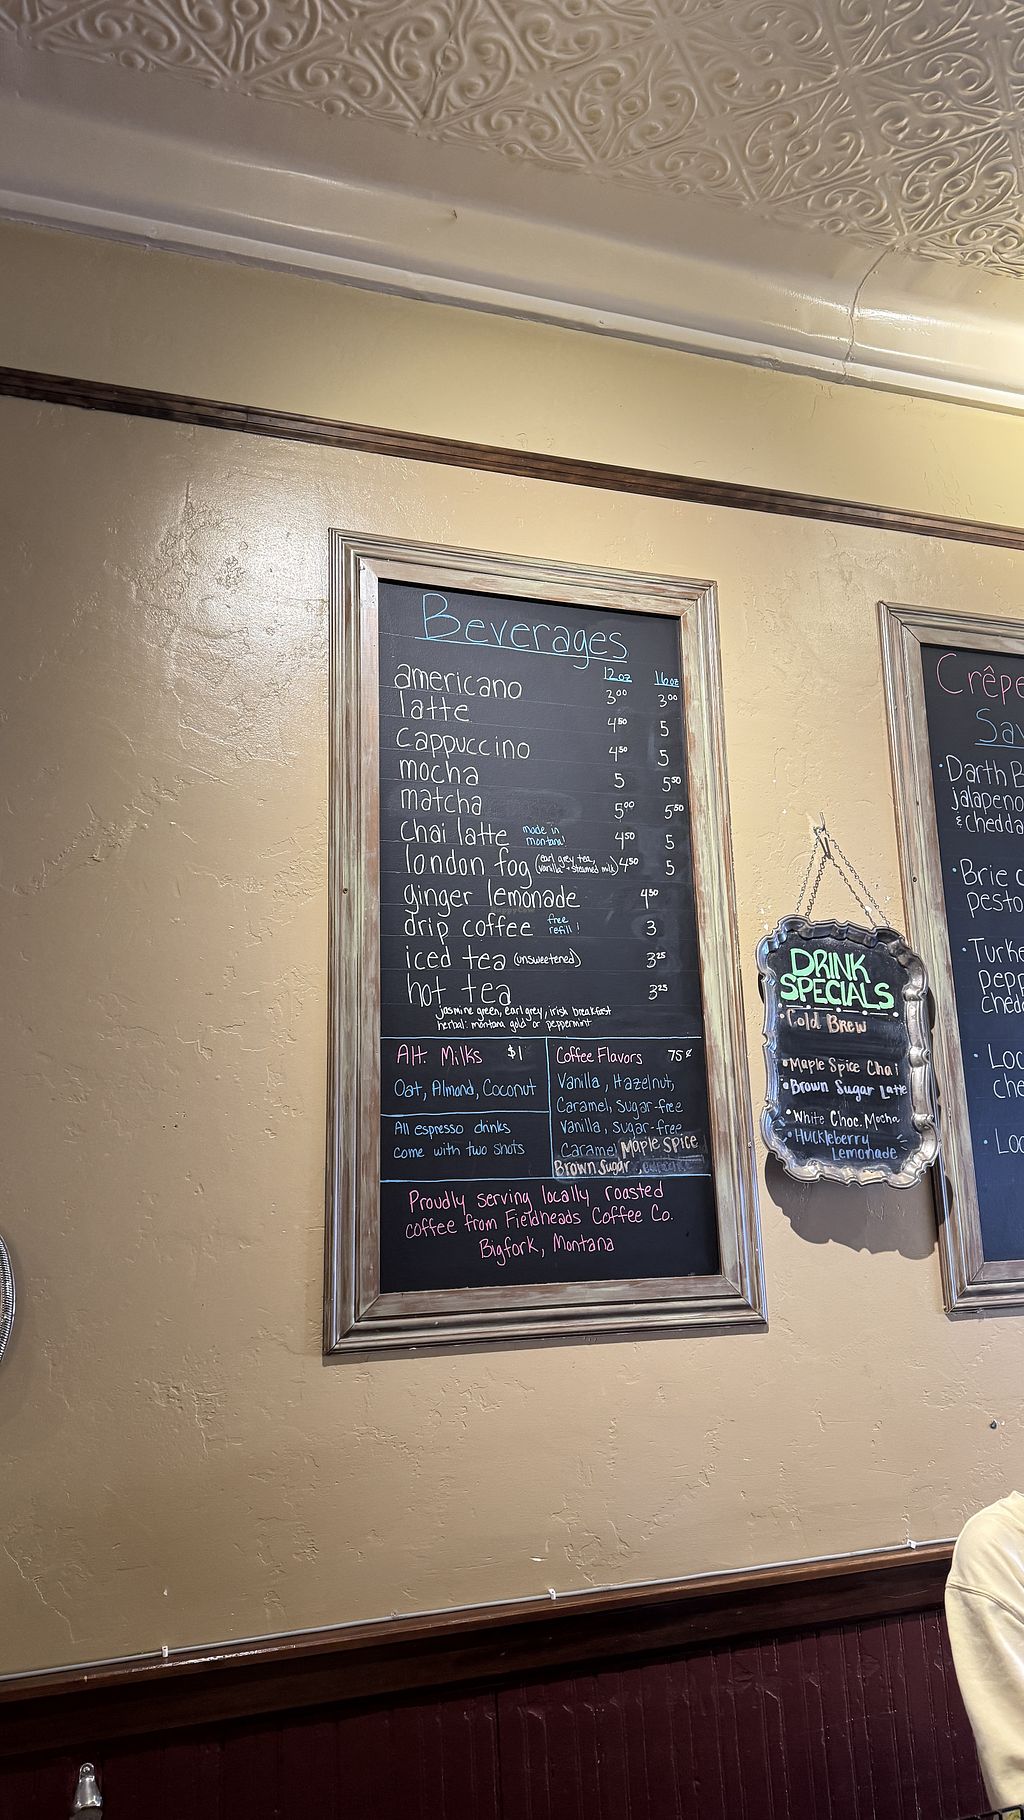 Beverages
12oz 16oz
americano 3⁰⁰ 3⁰⁰
latte 4⁵⁰ 5
cappuccino 4⁵⁰ 5
mocha 5 5⁵⁰
matcha 5⁰⁰ 5⁵⁰
chai latte made in montana! 4⁵⁰ 5
london fog (earl grey tea, vanilla + steamed milk) 4⁵⁰ 5
ginger lemonade 4⁵⁰
drip coffee free refill! 3
iced tea (unsweetened) 3²⁵
hot tea 3²⁵
jasmine green, earl grey, irish breakfast
herbal: montana gold or peppermint
Alt. Milks $1
Oat, Almond, Coconut
All espresso drinks
come with two shots
Coffee Flavors 75¢
Vanilla, Hazelnut,
Caramel, sugar-free
Vanilla, sugar-free
Caramel Maple Spice
Brown Sugar
Proudly serving locally roasted
coffee from Fieldheads Coffee Co.
Bigfork, Montana
DRINK
SPECIALS
• Cold Brew
• Maple Spice Chai
• Brown Sugar Latte
• White Choc. Mocha
• Huckleberry
Lemonade
Crêpe
Sav
• Darth B
jalapeno
& chedda
• Brie c
pesto
• Turke
pepp
chedd
• Loc
che
• Loc